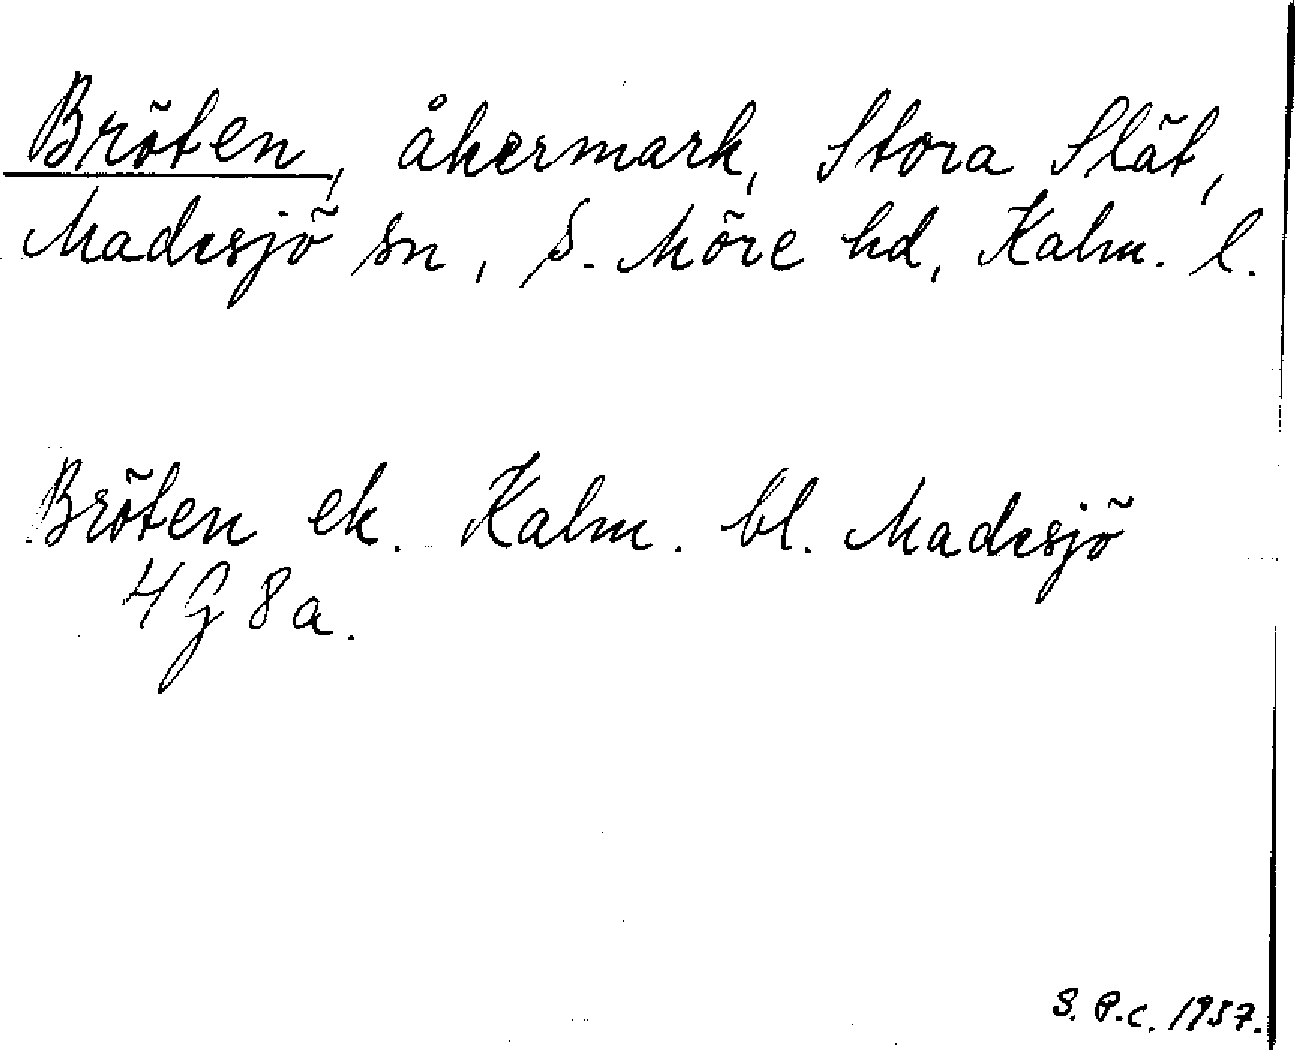 Bröten, åkermark, Stora Slät,
Madesjö sn, S. Möre hd, Kalm. l.
Bröten ek. Kalm. bl. Madesjö
4 G 8 a.
S. P.C. 1957.